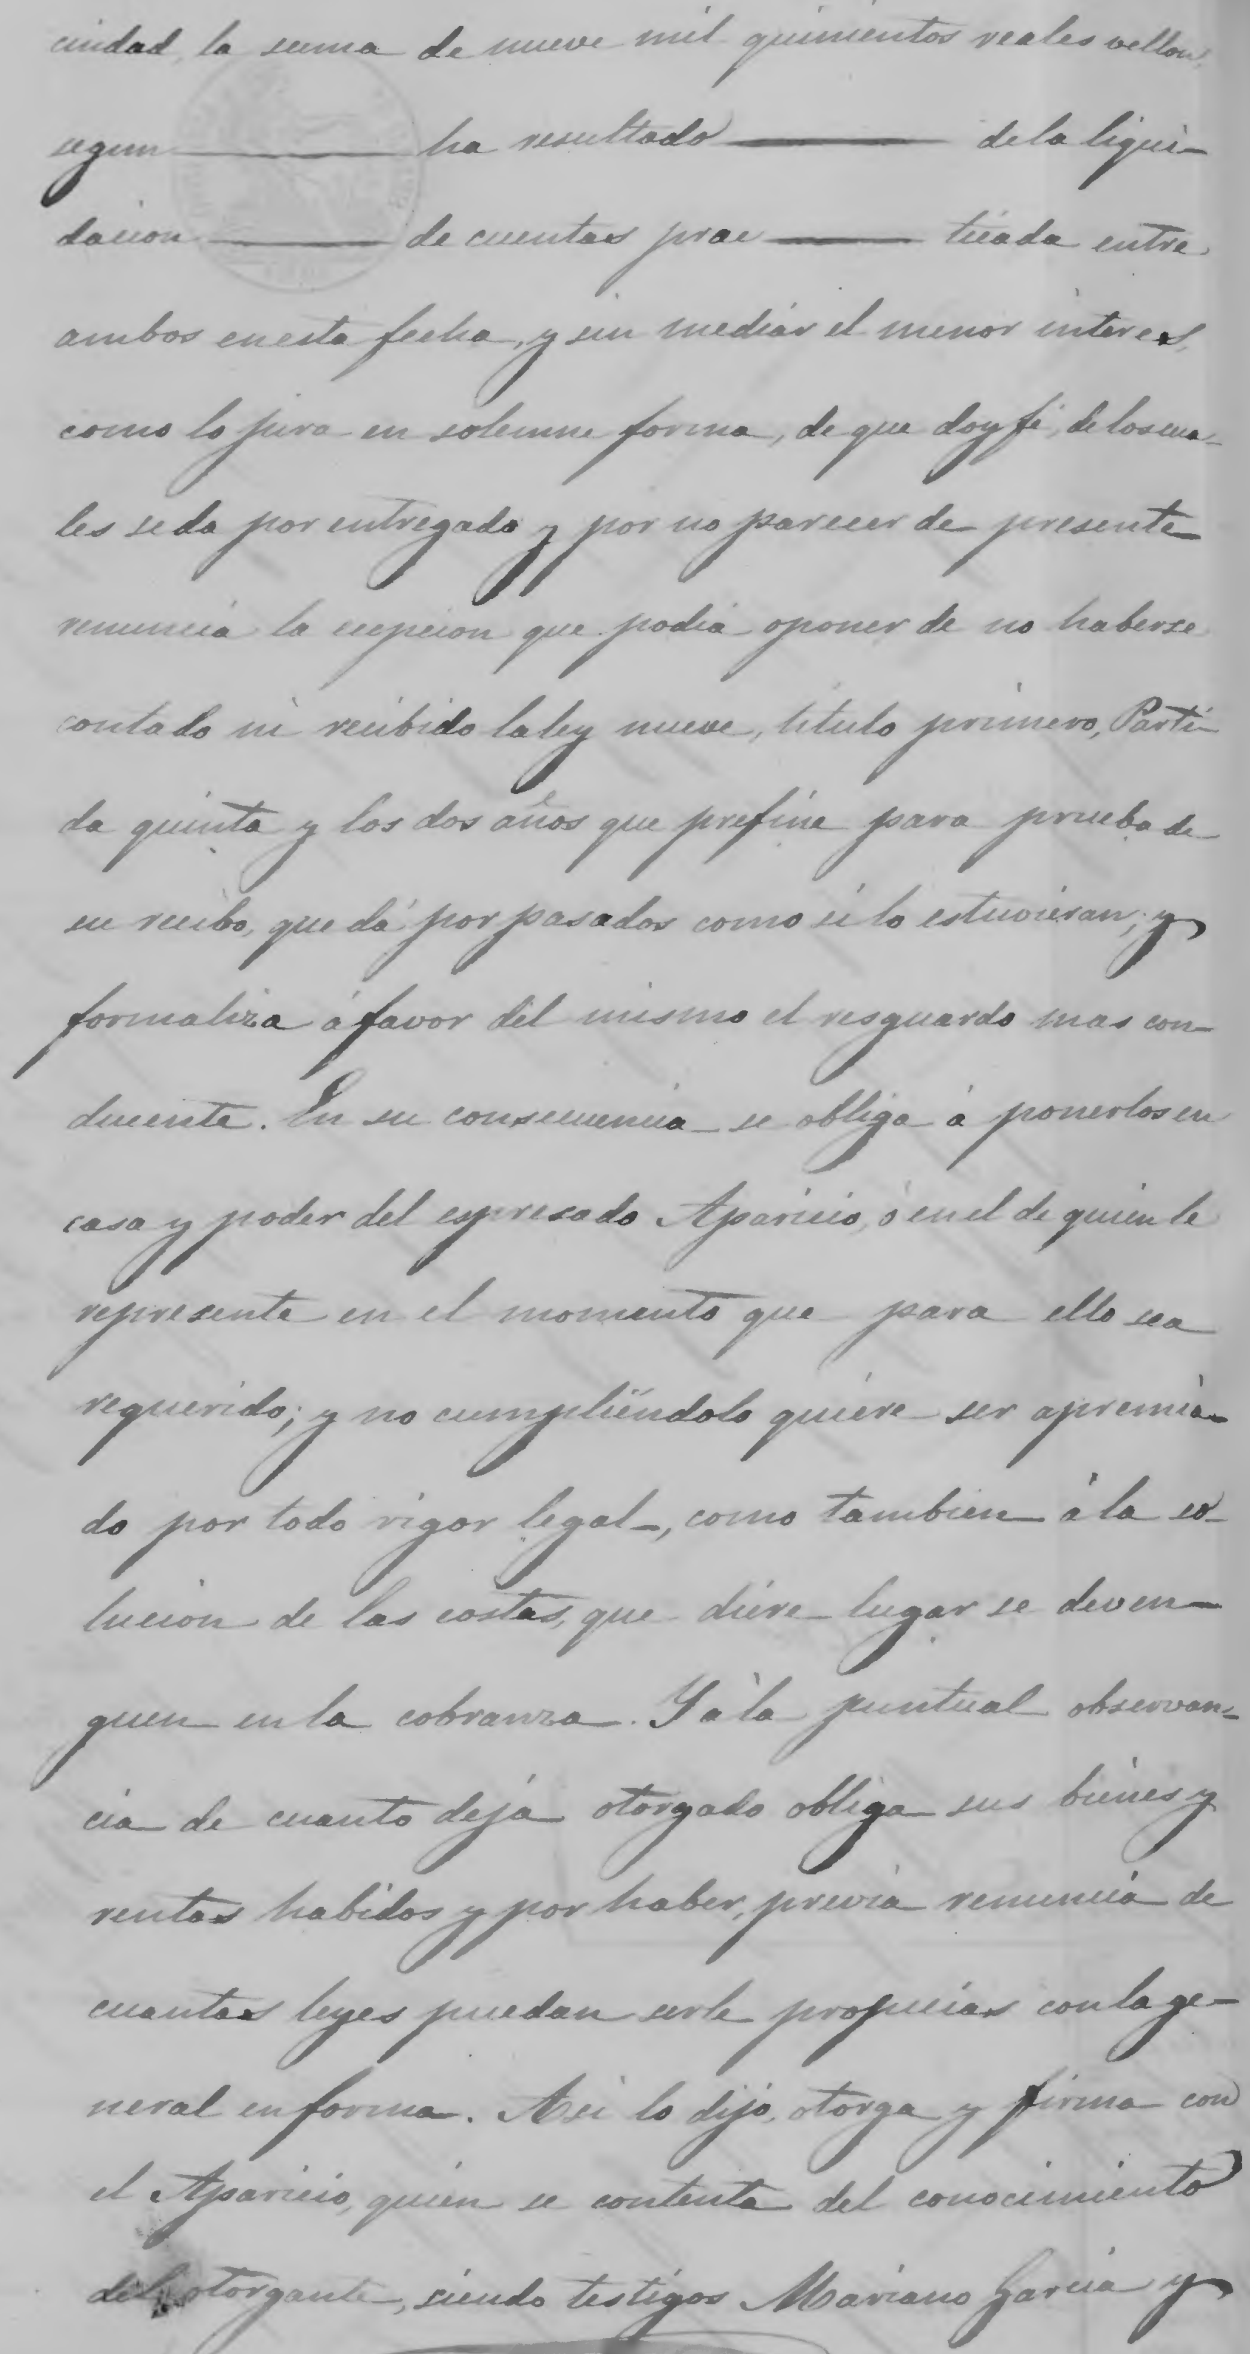 ciudad, la suma de nueve mil quinientos reales vellon,
segun ——— ha resultado ——— de la liqui-
dacion ——— de cuentas prac ——— ticada entre
ambos en esta fecha, y sin mediar el menor interes,
como lo jura en solemne forma, de que doy fé, de los cua-
les se da por entregado y por no parecer de presente
renuncia la ecepcion que podia oponer de no haberse
contado ni recibido la ley nueve, titulo primero, Parti-
da quinta y los dos años que prefine para prueba de
su recibo, que dá por pasados como si lo estuvieran; y
formaliza á favor del mismo el resguardo mas con-
ducente. En su consecuencia se obliga á ponerlos en
casa y poder del espresado Aparicio, ó en el de quien le
represente en el momento que para ello sea
requerido; y no cumpliéndolo quiere ser apremia-
do por todo rigor legal, como tambien á la so-
lucion de las costas, que diere lugar se deven-
guen en la cobranza. Y á la puntual observan-
cia de cuanto dejá otorgado obliga sus bienes y
rentas habidos y por haber, previa renuncia de
cuantas leyes puedan serle propicias con la ge-
neral en forma. Asi lo dijo, otorga y firma con
el Aparicio, quien se contenta del conocimiento
del otorgante, siendo testigos Mariano Garcia y